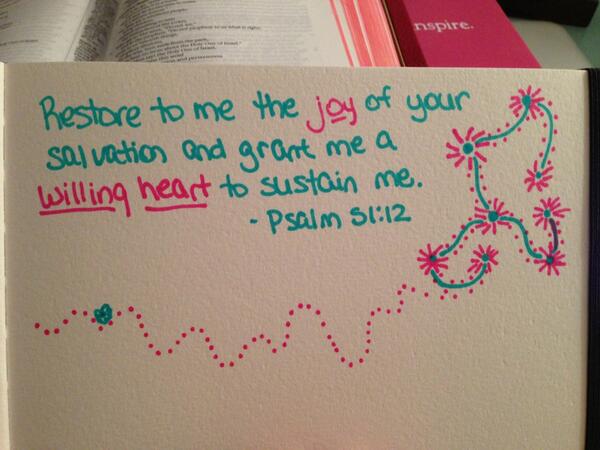 nspire.
Restore to me the joy of your
salvation and grant me a
willing heart to sustain me.
- Psalm 51:12